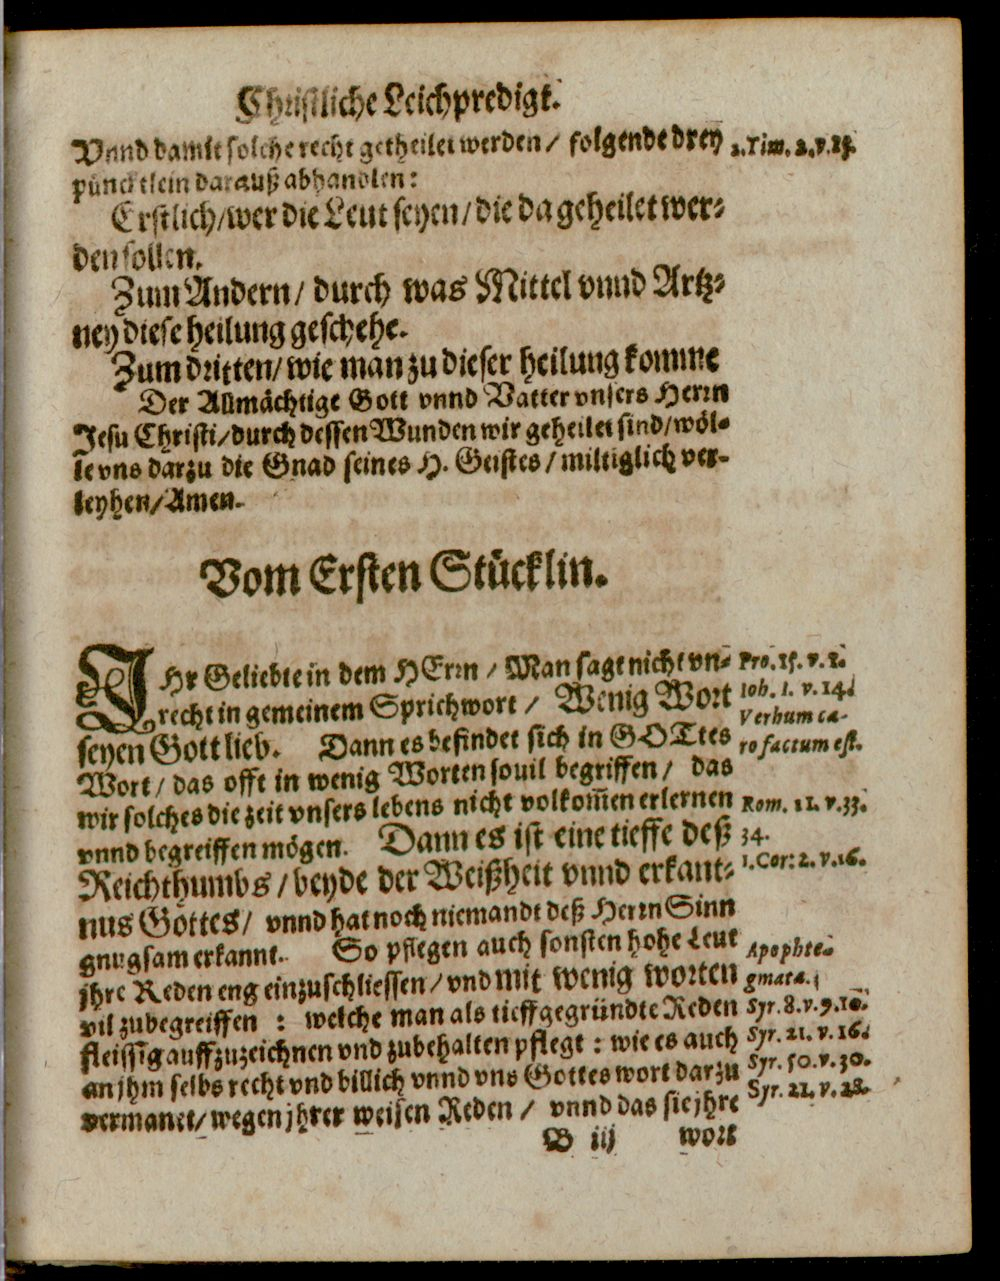 Christliche Leichpredigt.
Vnnd damit solche recht getheilet werden / folgende drey 2. Tim. 2. v. 15.
pünctlein darauß abhandlen:
Erstlich / wer die Leut seyen / die da geheilet wer-
den sollen.
Zum Andern / durch was Mittel vnnd Artz-
ney diese heilung geschehe.
Zum dritten / wie man zu dieser heilung komme
Der Allmächtige Gott vnnd Vatter vnsers Herrn
Jesu Christi / durch dessen Wunden wir geheilet sind / wöl-
le vns darzu die Gnad seines H. Geistes / miltiglich ver-
leyhen / Amen.
Vom Ersten Stücklin.
IHr Geliebte in dem HErrn / Man sagt nicht vn- Pro. 15. v. 1.
recht in gemeinem Sprichwort / Wenig Wort Ioh. 1. v. 14.
seyen Gott lieb. Dann es befindet sich in GOTtes Verbum ca-
Wort / das offt in wenig Worten souil begriffen / das ro factum est.
wir solches die zeit vnsers lebens nicht volkom̃en erlernen Rom. 11. v. 33.
vnnd begreiffen mögen. Dann es ist eine tieffe deß 34.
Reichthumbs / beyde der Weißheit vnnd erkant- 1. Cor: 2. v. 16.
nus Gottes / vnnd hat noch niemandt deß Herrn Sinn
gnugsam erkannt. So pflegen auch sonsten hohe Leut Apophte-
jhre Reden eng einzuschliessen / vnd mit wenig worten gmata.
vil zubegreiffen : welche man als tieffgegründte Reden Syr. 8. v. 9. 10.
fleissig auffzuzeichnen vnd zubehalten pflegt : wie es auch Syr. 21. v. 16.
an jhm selbs recht vnd billich vnnd vns Gottes wort darzu Syr. 50. v. 30.
vermanet / wegen jhrer weisen Reden / vnnd das sie jhre Syr. 21. v. 28.
B iij wort